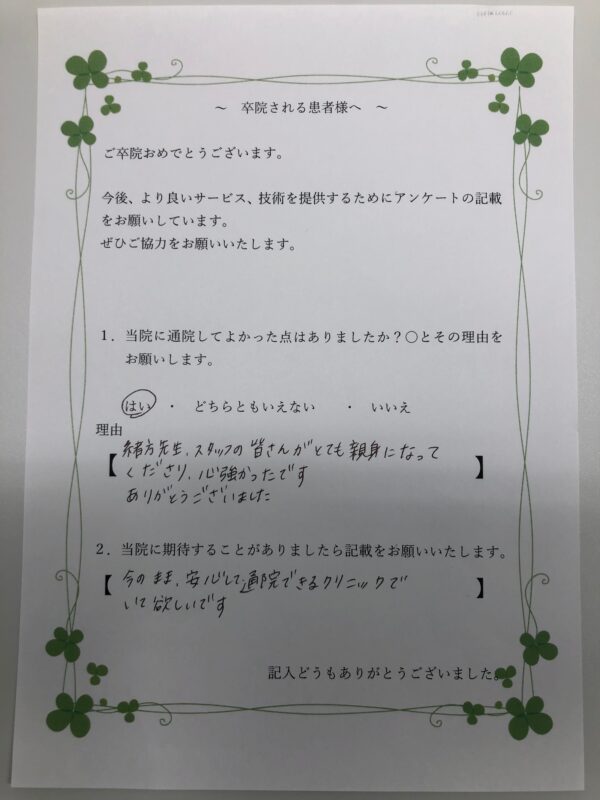 ～ 卒院される患者様へ ～
ご卒院おめでとうございます。
今後、より良いサービス、技術を提供するためにアンケートの記載
をお願いしています。
ぜひご協力をお願いいたします。
1．当院に通院してよかった点はありましたか？〇とその理由を
お願いします。
はい ・ どちらともいえない ・ いいえ
理由
【緒方先生、スタッフの皆さんがとても親身になって
くださり、心強かったです
ありがとうございました】
2．当院に期待することがありましたら記載をお願いいたします。
【今のまま、安心して通院できるクリニックで
いて欲しいです】
記入どうもありがとうございました。